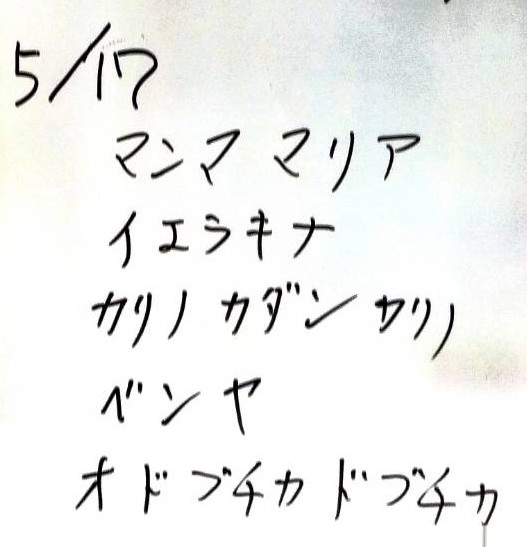 5/17
マンマ マリア
イエラキナ
カリノ カダン カリノ
ベンヤ
オドブチカドブチカ